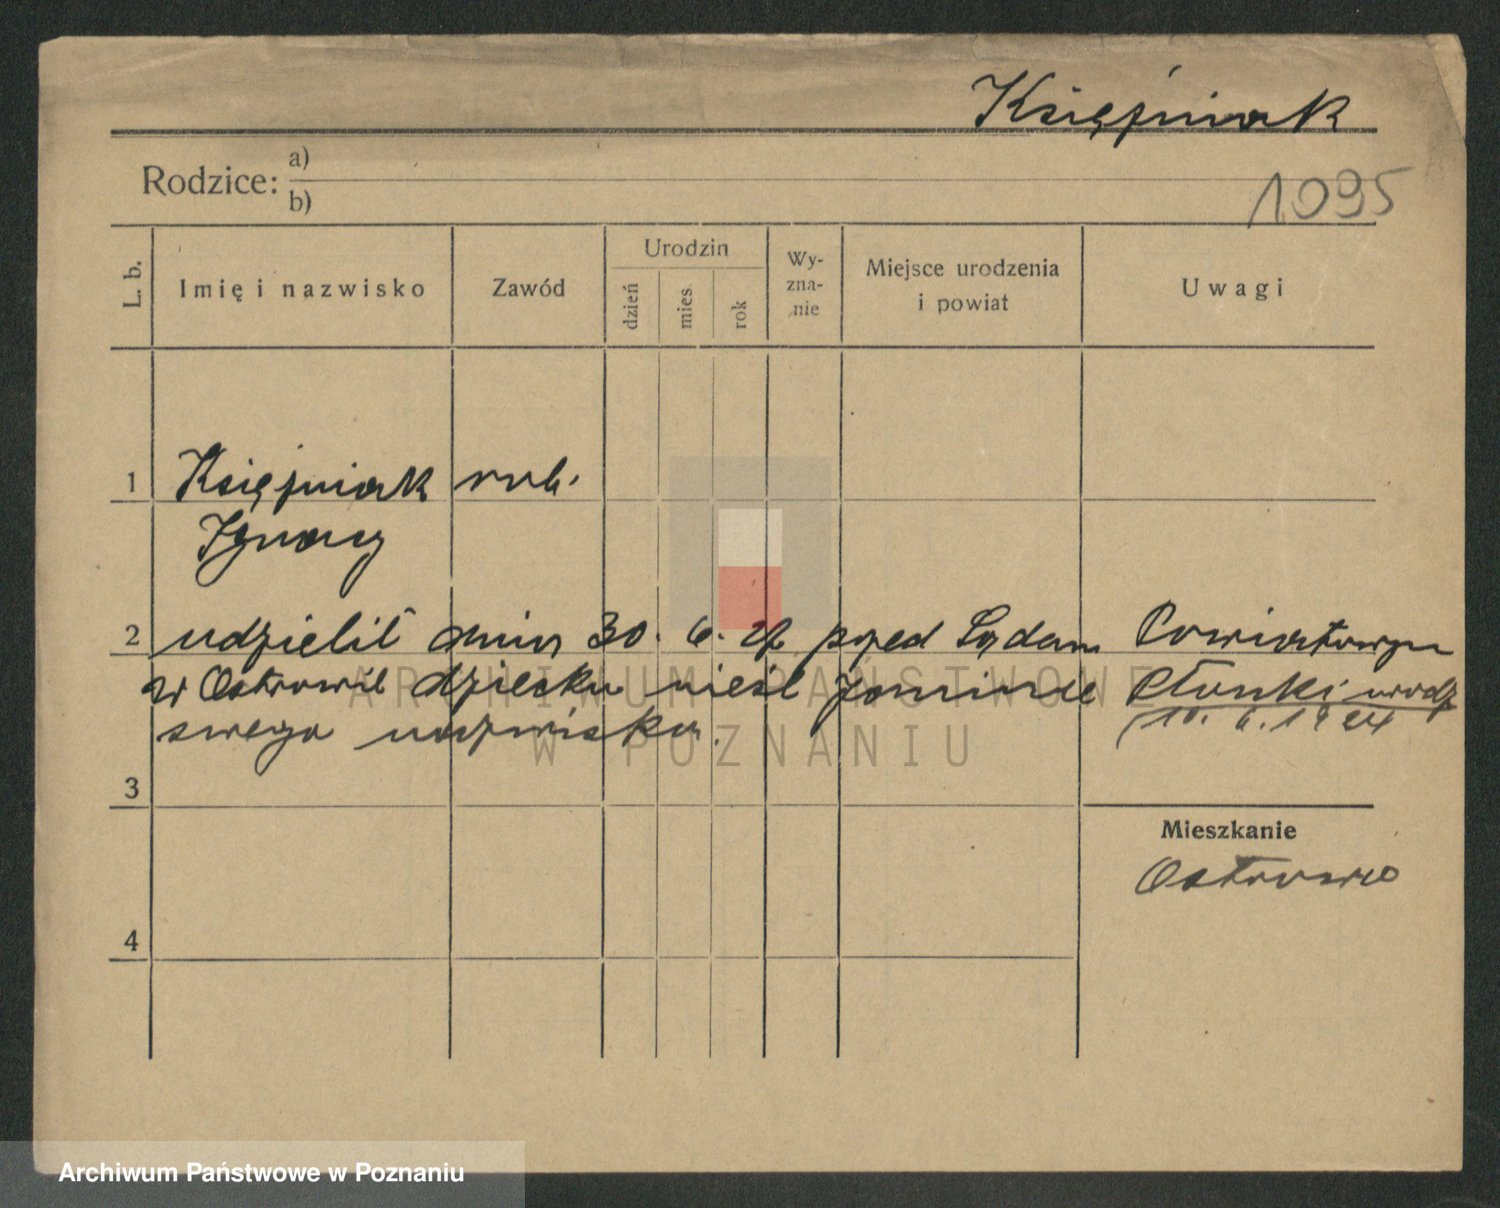 Księżniak
Rodzice: a)
b)
1095
L. b.
Imię i nazwisko
Zawód
Urodzin
dzień
mies.
rok
Wy-
zna-
nie
Miejsce urodzenia
i powiat
Uwagi
1 Księżniak rob.
Ignacy
2 udzielił dnia 30. 6. 27 przed Sądem Powiatowym
w Ostrowie dziecku nieśl Janinie urodz
swego nazwiska. 10. 6. 1924
3
Mieszkanie
Ostrowo
4
ARCHIWUM PAŃSTWOWE
W POZNANIU
Archiwum Państwowe w Poznaniu